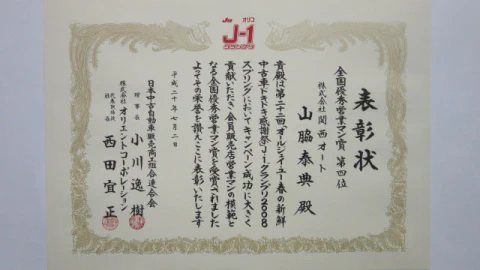 JU オリコ
J-1
グランプリ
表彰状
全国優秀営業マン賞 第四位
株式会社 関西オート
山脇泰典 殿
貴殿は第二十二回オールジェイユー春の新鮮
中古車ドキドキ感謝祭J-1グランプリ2008
スプリングにおいてキャンペーン成功に大きく
貢献いただき会員販売店営業マンの模範と
なる全国優秀営業マン賞を受賞されました
よってその栄誉を讃えここに表彰いたします
平成二十年七月二日
日本中古自動車販売商工組合連合会
理事長 小川逸樹
株式会社オリエントコーポレーション
代表取締役社長 西田宜正